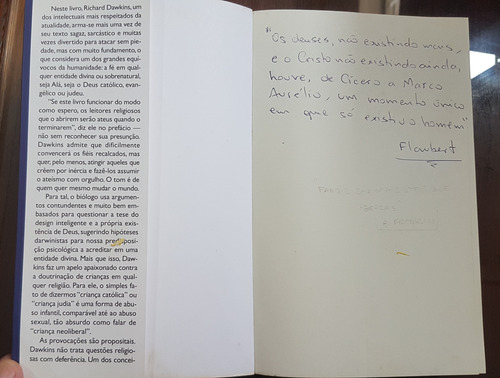 Neste livro, Richard Dawkins, um
dos intelectuais mais respeitados da
atualidade, arma-se mais uma vez de
seu texto sagaz, sarcástico e muitas
vezes divertido para atacar sem pie-
dade, mas com muito fundamento, o
que considera um dos grandes equí-
vocos da humanidade: a fé em qual-
quer entidade divina ou sobrenatural,
seja Alá, seja o Deus católico, evan-
gélico ou judeu.
"Se este livro funcionar do modo
como espero, os leitores religiosos
que o abrirem serão ateus quando o
terminarem", diz ele no prefácio —
não sem reconhecer sua presunção.
Dawkins admite que dificilmente
convencerá os fiéis recalcados, mas
quer, pelo menos, atingir aqueles que
creem por inércia e fazê-los assumir
o ateísmo com orgulho. O tom é de
quem quer mesmo mudar o mundo.
Para tal, o biólogo usa argumen-
tos contundentes e muito bem em-
basados para questionar a tese do
design inteligente e a própria exis-
tência de Deus, sugerindo hipóteses
darwinistas para nossa predisposi-
ção psicológica a acreditar em uma
entidade divina. Mais que isso, Daw-
kins faz um apelo apaixonado contra
a doutrinação de crianças em qual-
quer religião. Para ele, o simples fa-
to de dizermos "criança católica" ou
"criança judia" é uma forma de abu-
so infantil, comparável até ao abuso
sexual, tão absurdo como falar de
"criança neoliberal".
As provocações são propositais.
Dawkins não trata questões religio-
sas com deferência. Um dos concei-
"Os deuses, não existindo mais,
e o Cristo não existindo ainda,
houve, de Cícero a Marco
Aurélio, um momento único
em que só existiu o homem"
Flaubert